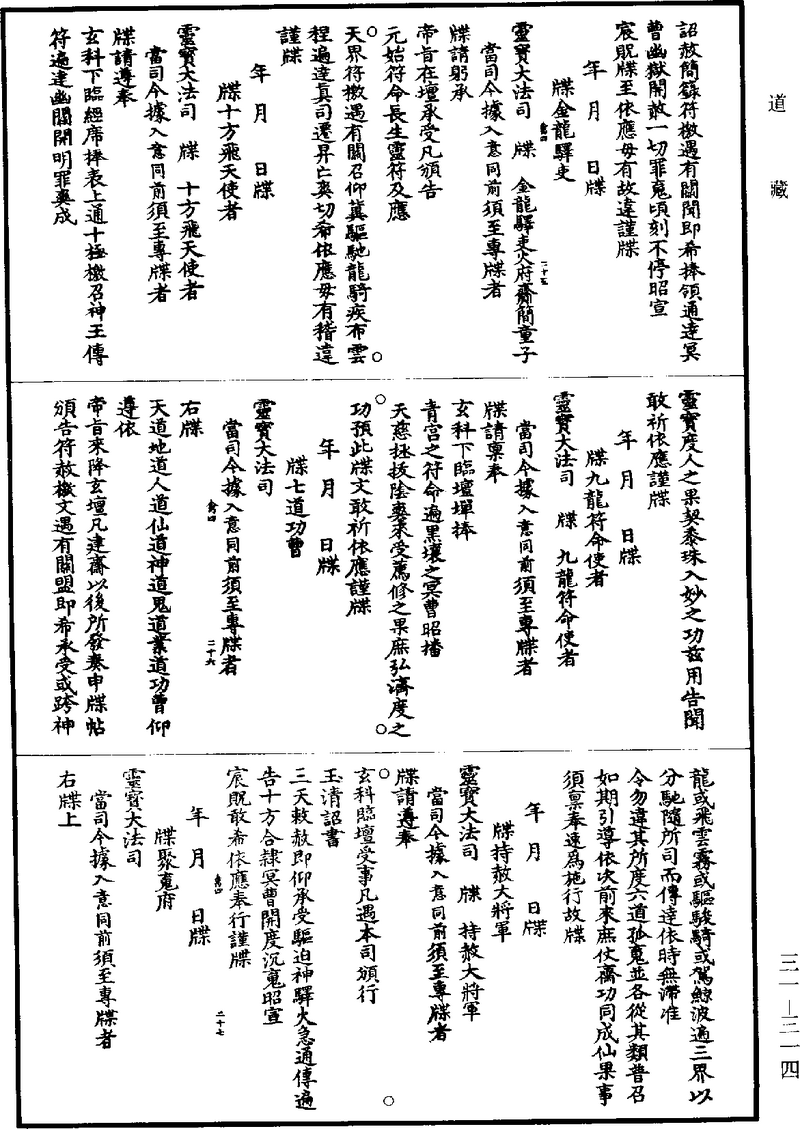 道藏
詔赦簡籙符檄遇有關聞即希捧領通達冥
曹幽獄開赦一切罪魂頃刻不停昭宣
宸貺牒至依應毋有故違謹牒
年　月　日牒
牒金龍驛吏
靈寶大法司　牒　金龍驛吏火府齋簡童子
當司今據入意同前須至專牒者
牒請躬承
帝旨在壇承受凡頒告
元始符命長生靈符及應
天界符檄遇有關召仰冀驅馳龍騎疾布雲
程遍達真司遷昇亡爽切希依應毋有稽違
謹牒
年　月　日牒
牒十方飛天使者
靈寶大法司　牒　十方飛天使者
當司今據入意同前須至專牒者
牒請遵奉
玄科下臨經席捧表上通十極檄召神王傳
符遍達幽關開明罪爽成
靈寶度人之果契黍珠入妙之功茲用告聞
敢祈依應謹牒
年　月　日牒
牒九龍符命使者
靈寶大法司　牒　九龍符命使者
當司今據入意同前須至專牒者
牒請稟奉
玄科下臨壇墠捧
青宮之符命遍黑壤之冥曹昭播
天慈拯拔陰爽來受薦修之果庶弘濟度之
功預此牒文敢祈依應謹牒
年　月　日牒
牒七道功曹
靈寶大法司
當司今據入意同前須至專牒者
右牒
天道地道人道仙道神道鬼道業道功曹仰
遵依
帝旨來降玄壇凡建齋以後所發奏申牒帖
頒告符赦檄文遇有關盟即希承受或跨神
龍或飛雲霧或驅駿騎或駕鯨波遍三界以
分馳隨所司而傳達依時無滯准
令勿違其所度六道孤魂並各從其類普召
如期引導依次前來庶仗齋功同成仙果事
須稟奉速為施行故牒
年　月　日牒
牒持赦大將軍
靈寶大法司　牒　持赦大將軍
當司今據入意同前須至專牒者
牒請遵奉
玄科臨壇受事凡遇本司頒行
玉清詔書
三天敕赦即仰承受驅迫神驛火急通傳遍
告十方合隸冥曹開度沉魂昭宣
宸貺敢希依應奉行謹牒
年　月　日牒
牒聚魂府
靈寶大法司
當司今據入意同前須至專牒者
右牒上
二十五
二十六
二十七
三一—三一四